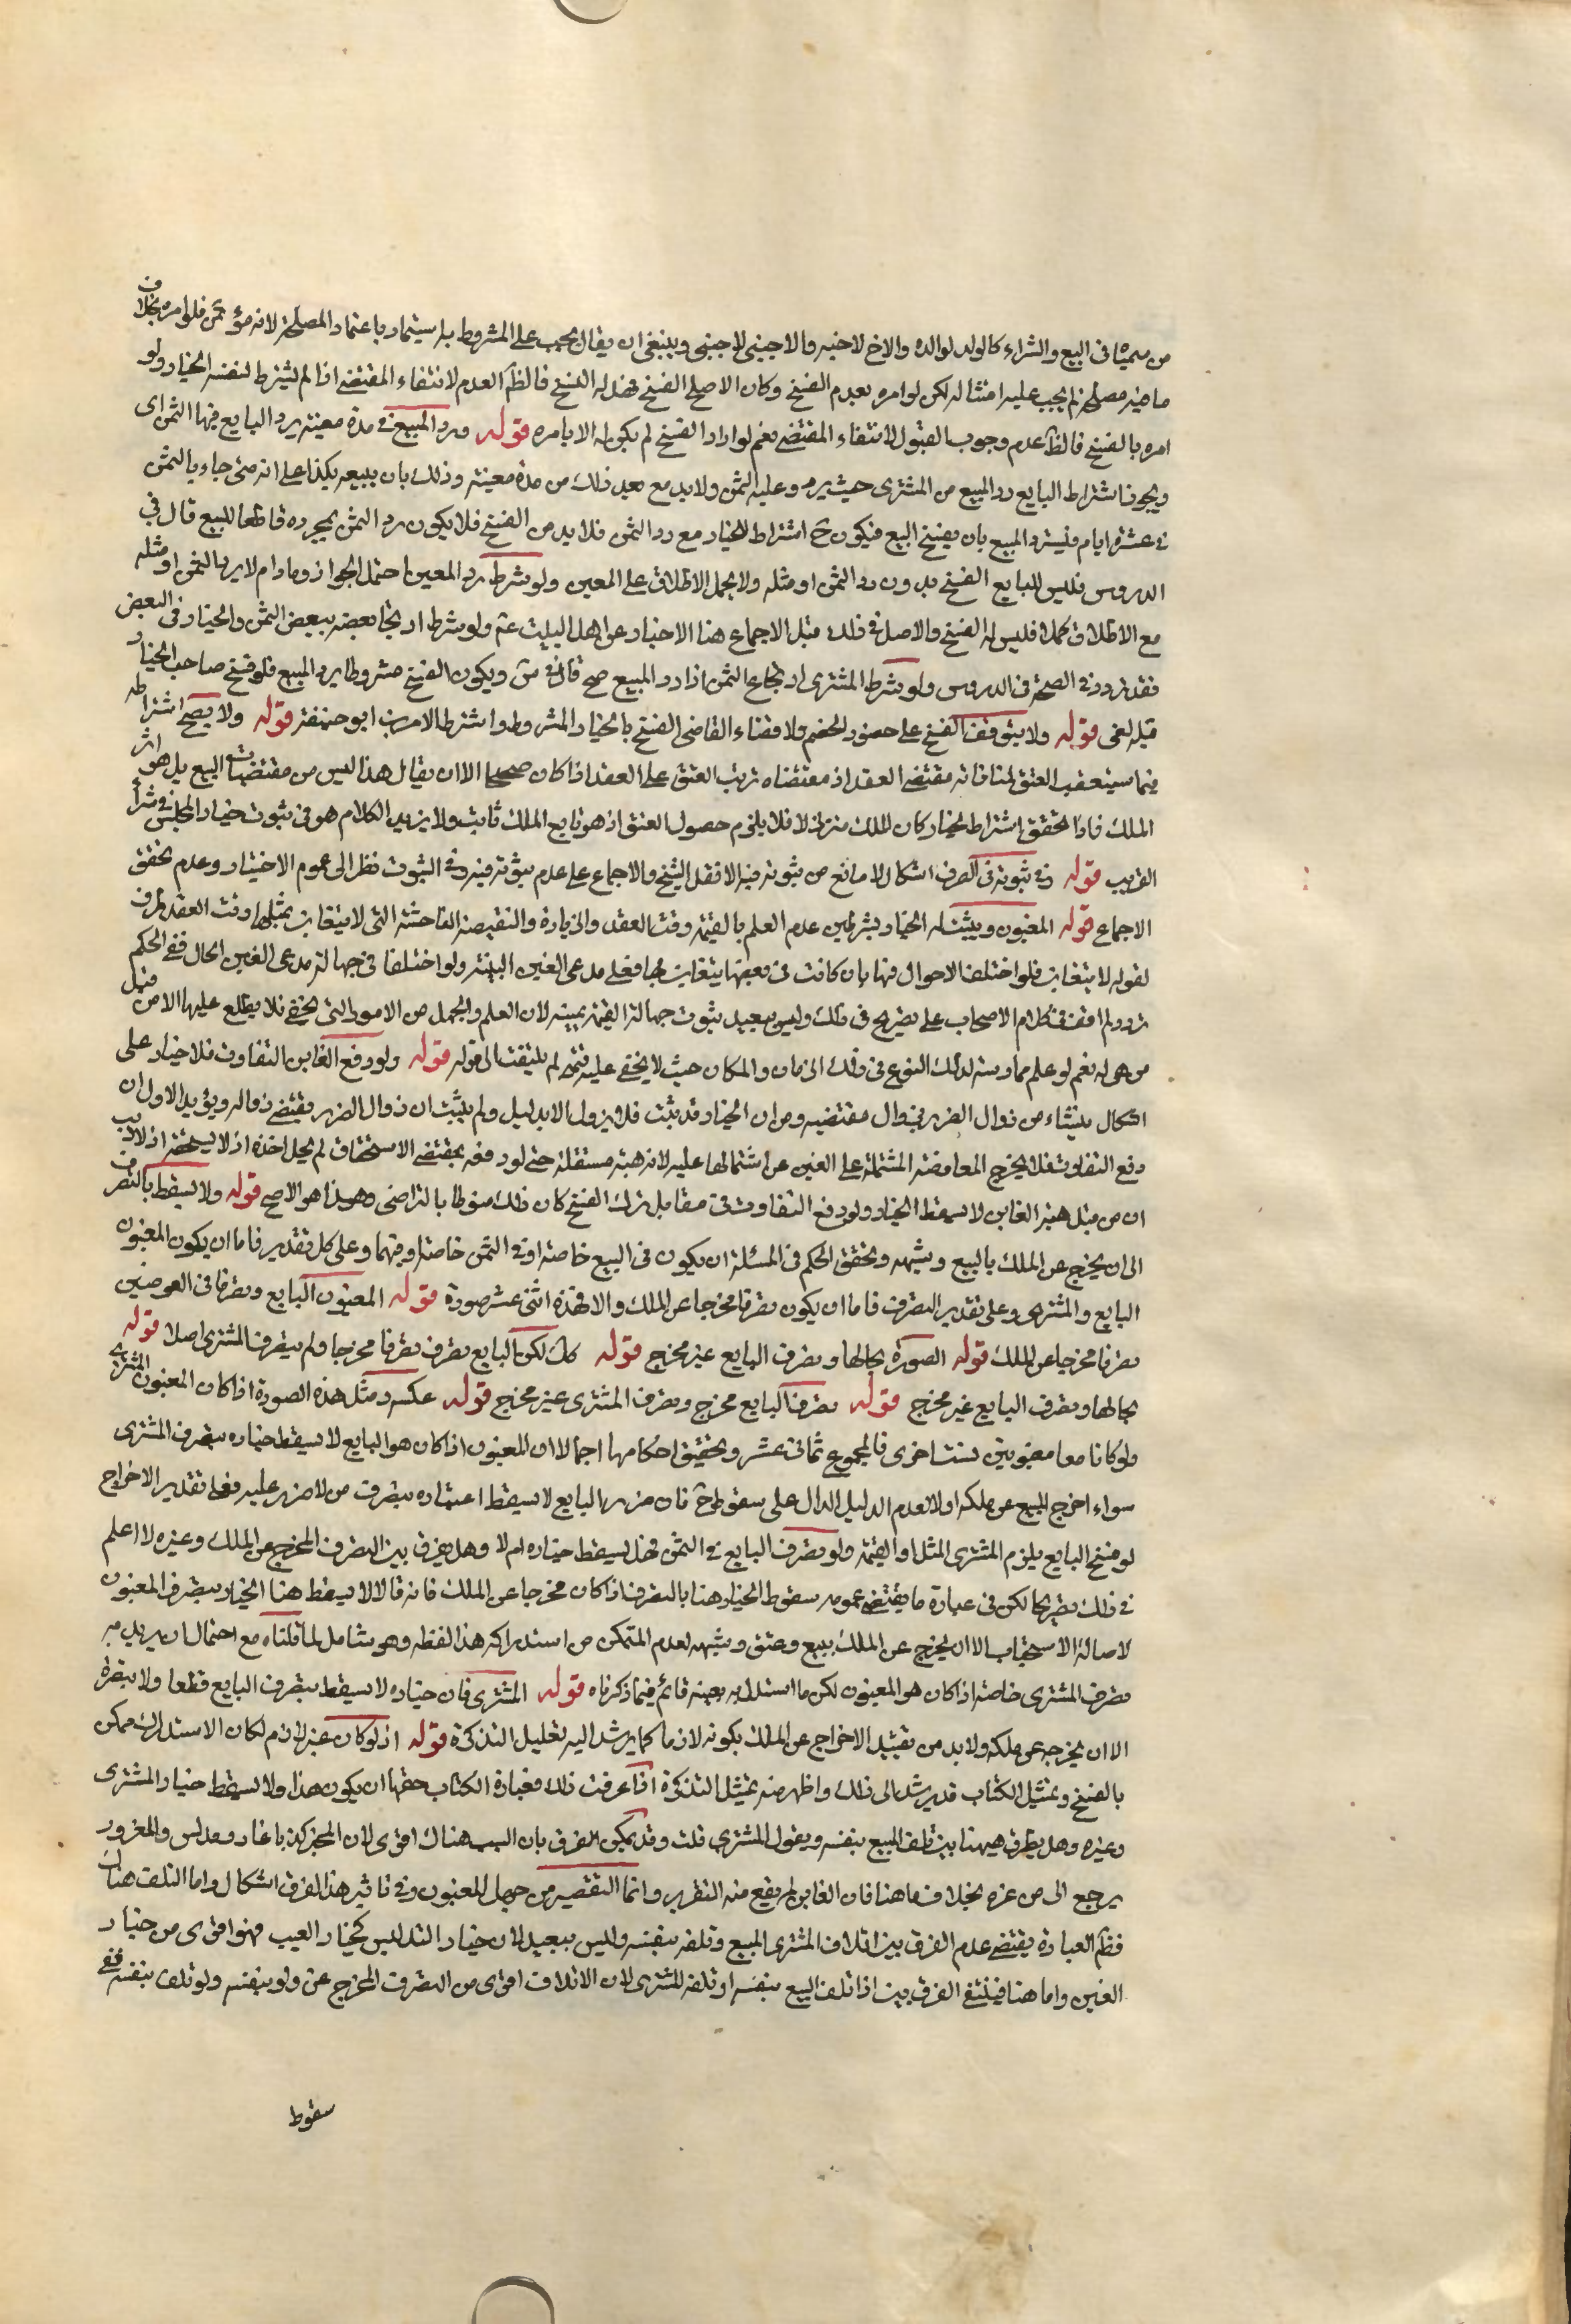 من سميناه في البيع والشراء كالولد لوالده والاخ لاخيه والاجنبي لاجنبي وينبغي ان يقال يجب على المشروط باستيمار باعتماد المصلحة لانه مؤتمن فلو امره بخلاف
ما فيه مصلحة لم يجب عليه امتثاله لكن لو امره بعدم الفسخ وكان الاصلح الفسخ فهل له الفسخ فالظ العدم لانتفاء المقتضي اذا لم يشترط لنفسه الخيار ولو
امره بالفسخ فالظ عدم وجوب القبول لانتفاء المقتضي نعم لو اراد الفسخ لم يكن له الا بامره قوله ورد المبيع في مدة معينة يرد البايع فيها الثمن اى
ويجوز اشتراط البايع رد المبيع من المشتري حيث يرد عليه الثمن ولا بد مع بعد ذلك من مدة معينة وذلك بان يبيعه بكذا على انه متى جاء بالثمن
في عشرة ايام فيسترد المبيع بان يفسخ البيع فيكون ح اشتراط الخيار مع رد الثمن فلا بد من الفسخ فلا يكون رد الثمن بمجرده قاطعا للبيع قال في
الدروس فليس للبايع الفسخ بدون رد الثمن او مثله ولا يحمل الاطلاق على المعين ولو شرط رد المعين احتمل الجواز وما دام لا يرد الثمن او مثله
مع الاطلاق فليس له الفسخ والاصل في ذلك قبل الاجماع هنا الاخبار عن اهل البيت عم ولو شرط ارتجاع بعضه ببعض الثمن والخيار في البعض
فقد تردد في الصحة في الدروس ولو شرط المشتري ارتجاع الثمن اذا رد المبيع صح قاله في س ويكون الفسخ مشروطا برد المبيع فلو فسخ صاحب الخيار
قبله لغى قوله ولا يتوقف الفسخ على حضور الخصم ولا قضاء القاضي الفسخ بالخيار المشروط واشترط الامرين ابو حنيفة قوله ولا يصح اشتراطه
فيما سيتعقب العتق لمنافاته مقتضى العقد اذ مقتضاه ترتب العتق على العقد اذا كان صحيحا الا ان يقال هذا ليس من مقتضيات البيع بل هو اثر
الملك فاذا تحقق اشتراط الخيار كان الملك متزلزلا فلا يلزم حصول العتق اذ هو تابع الملك ثابت ولا يزيد الكلام هو في ثبوت خيار المجلس في شراء
القريب قوله وفي ثبوته في الصرف اشكال لا مانع من ثبوته فيه الا نقل الشيخ والاجماع على عدم ثبوته فيه وفي الثبوت نظرا الى عموم الاخبار وعدم تحقق
الاجماع قوله المغبون ويثبت له الخيار بشرطين عدم العلم بالقيمة وقت العقد والزيادة والنقيصة الفاحشة التي لا يتغابن بمثلها وقت العقد ظرف
لقوله لا يتغابن فلو اختلف الاحوال فيها بان كانت في بعضها يتغابن بها فعلى مدعي الغبن البينة ولو اختلفا في جهالة مدعي الغبن الحال ففي الحكم
تردد لم اقف في كلام الاصحاب على تصريح في ذلك وليس ببعيد ثبوت جهالة القيمة بيمينه لان العلم والجهل من الامور التي تخفى فلا يطلع عليها الا من قبل
من هي له نعم لو علم ممارسته لذلك النوع في ذلك الزمان والمكان حيث لا يخفى عليه قيمته لم يلتفت الى قوله قوله ولو دفع الغابن التفاوت فلا خيار على
اشكال ينشأ من زوال الضرر فيزول مقتضيه ومن ان الخيار قد ثبت فلا يزول الا بدليل ولم يثبت ان زوال الضرر يقتضي زواله ويؤيد الاول ان
دفع التفاوت لا يخرج المعاوضة المشتملة على الغبن عن اشتمالها عليه لانه هبة مستقلة حتى لو دفعه بمقتضى الاستحقاق لم يحل اخذه اذ لا يستحقه اذ لا ريب
ان من قبل هبة الغابن لا يسقط الخيار ولو دفع التفاوت في مقابل ترك الفسخ كان ذلك منوطا بالتراضي وهذا هو الاصح قوله ولا يسقط بالتصرف
الى ان يخرج عن الملك بالبيع وشبهه وتحقق الحكم في المسئلة ان يكون في البيع خاصة او في الثمن خاصة او فيهما وعلى كل تقدير فاما ان يكون المغبون
البايع والمشتري وعلى تقدير التصرف فاما ان يكون تصرفا مخرجا عن الملك والا فهذه اثنى عشر صورة قوله المغبون البايع وتصرفا في العوضين
تصرفا مخرجا عن الملك قوله الصورة بحالها وتصرف البايع غير مخرج قوله كك لكن البايع تصرف تصرفا مخرجا ولم يتصرف المشتري اصلا قوله
بحالها وتصرف البايع غير مخرج قوله تصرف البايع مخرج وتصرف المشتري غير مخرج قوله عكسه ومثل هذه الصورة اذا كان المغبون المشتري
ولو كانا معا مغبونين ست اخرى فالمجموع ثماني عشر وتحقيق احكامها اجمالا ان المغبون اذا كان هو البايع لا يسقط خياره بتصرف المشتري
سواء اخرج المبيع عن ملكه اولا لعدم الدليل الدال على سقوطه ح فان ضرر البايع لا يسقط اعتباره بتصرف من لا ضرر عليه فعلى تقدير الاخراج
لو فسخ البايع يلزم المشتري المثل او القيمة ولو تصرف البايع في الثمن فهل يسقط خياره ام لا وهل يفرق بين التصرف المخرج عن الملك وغيره لا اعلم
في ذلك تصريحا لكن في عبارة ما يقتضي عمومه سقوط الخيار هنا بالتصرف اذا كان مخرجا عن الملك فانه قال لا يسقط هنا الخيار بتصرف المغبون
لاصالة الاستصحاب الا ان يخرج عن الملك ببيع وعتق وشبهه لعدم التمكن من استدراكه هذا لفظه وهو شامل لما قلناه مع احتمال ان يريد به
تصرف المشتري خاصة اذا كان هو المغبون لكن ما استدل به بعينه قائم فيما ذكرناه قوله المشتري فان خياره لا يسقط بتصرف البايع قطعا ولا بتصرفه
الا ان يخرجه عن ملكه ولا بد من تقييد الاخراج عن الملك بكونه لازما كما يرشد اليه تعليل التذكرة قوله اذ لو كان غير لازم لكان الاستدراك ممكن
بالفسخ وتمثيل الكتاب قد يرشد الى ذلك واظهر منه تمثيل التذكرة اذا عرفت ذلك فعبارة الكتاب حقها ان يكون هذا ولا يسقط خيار المشتري
وغيره وهل يطرق ههنا بين تلف المبيع بنفسه ويقول المشتري قلت وقد يمكن الفرق بان السبب هناك اقوى لان المخبر كذبا غار ومدلس والمغرور
يرجع الى من غره بخلاف ما هنا فان الغابن لم يقع منه التغرير وانما التقصير من جهل المغبون وفي تاثير هذا الفرق اشكال واما التلف هناك
فظ العبارة يقتضي عدم الفرق بين اتلاف المشتري المبيع وتلفه بنفسه وليس ببعيد لان خيار التدليس كخيار العيب فهو اقوى من خيار
الغبن واما هنا فينتفي الفرق بين اذا تلف المبيع بنفسه او تلفه المشتري لان الاتلاف اقوى من التصرف المخرج عن ولو بنفسه ولو تلف بنفسه ففي
سقوط